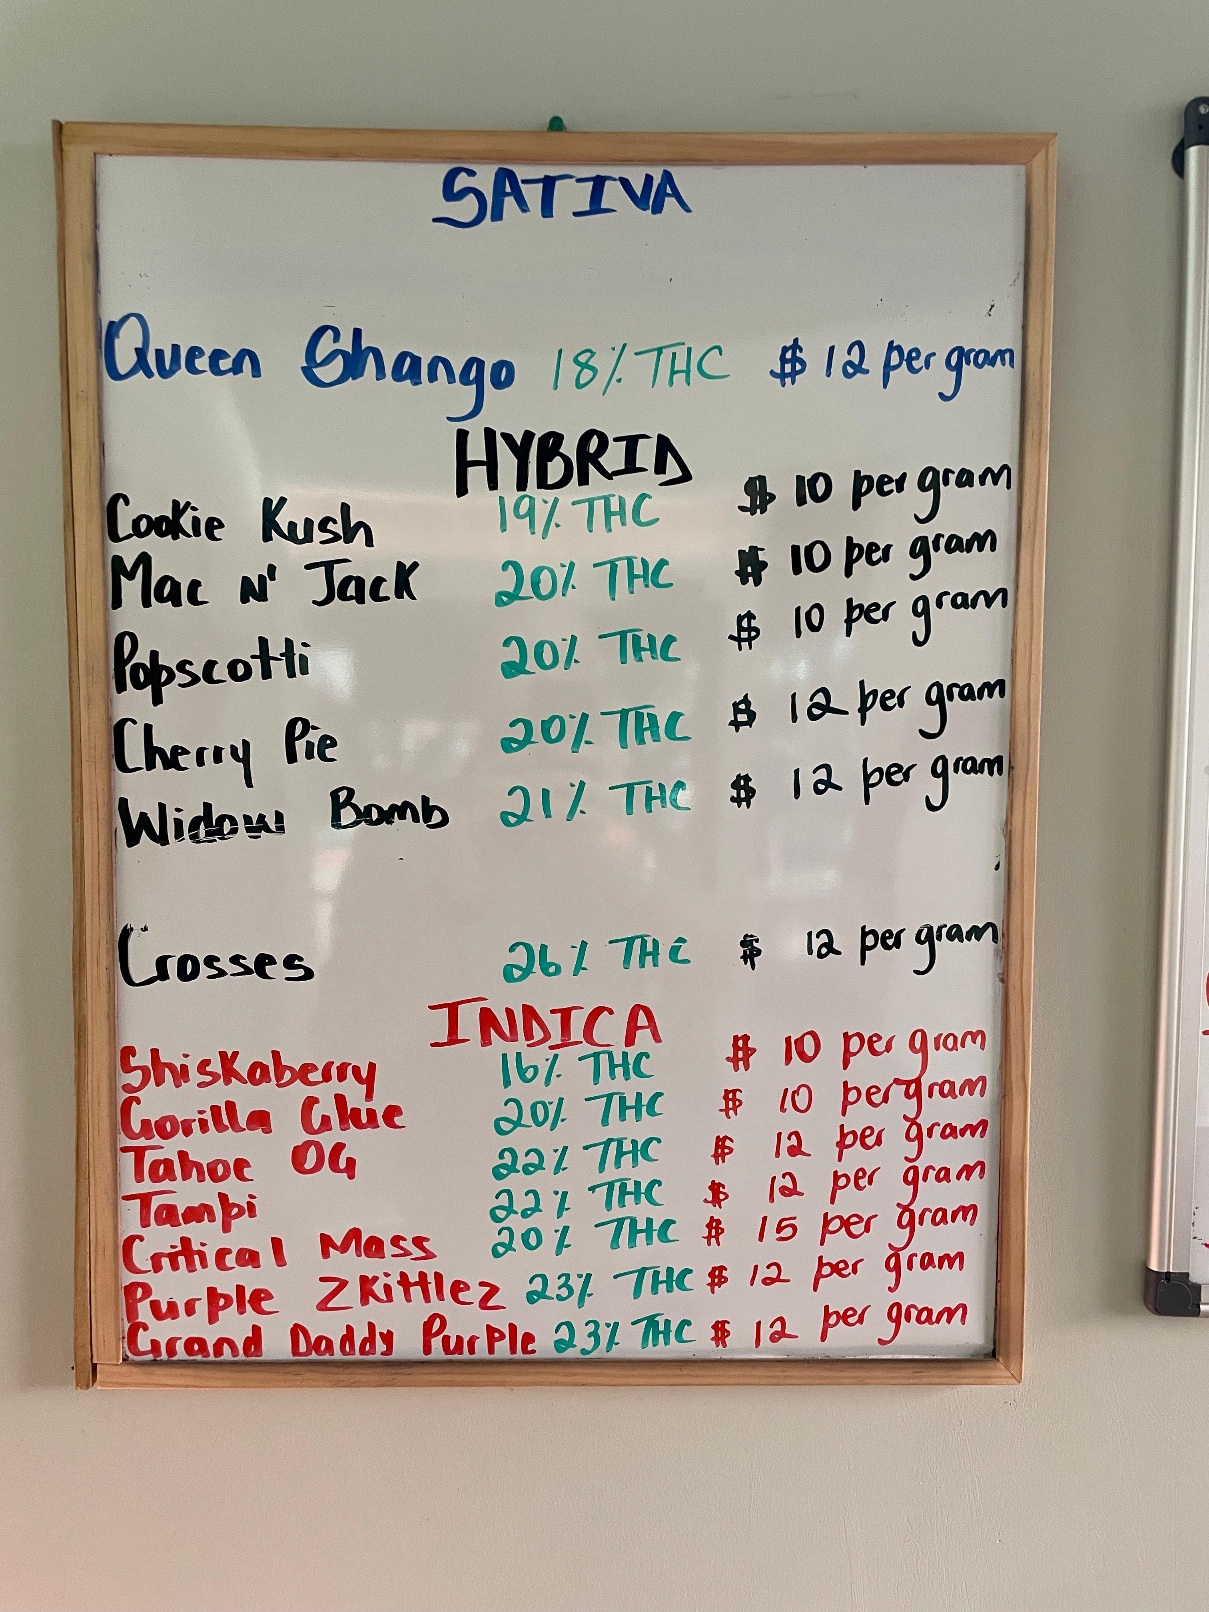 SATIVA
Queen Shango 18% THC $12 per gram
HYBRID
Cookie Kush 19% THC $10 per gram
Mac N' Jack 20% THC $10 per gram
Popscotti 20% THC $10 per gram
Cherry Pie 20% THC $12 per gram
Widow Bomb 21% THC $12 per gram
Crosses 26% THC $12 per gram
INDICA
Shiskaberry 16% THC $10 per gram
Gorilla Glue 20% THC $10 per gram
Tahoe OG 22% THC $12 per gram
Tampi 22% THC $12 per gram
Critical Mass 20% THC $15 per gram
Purple Zkittlez 23% THC $12 per gram
Grand Daddy Purple 23% THC $12 per gram